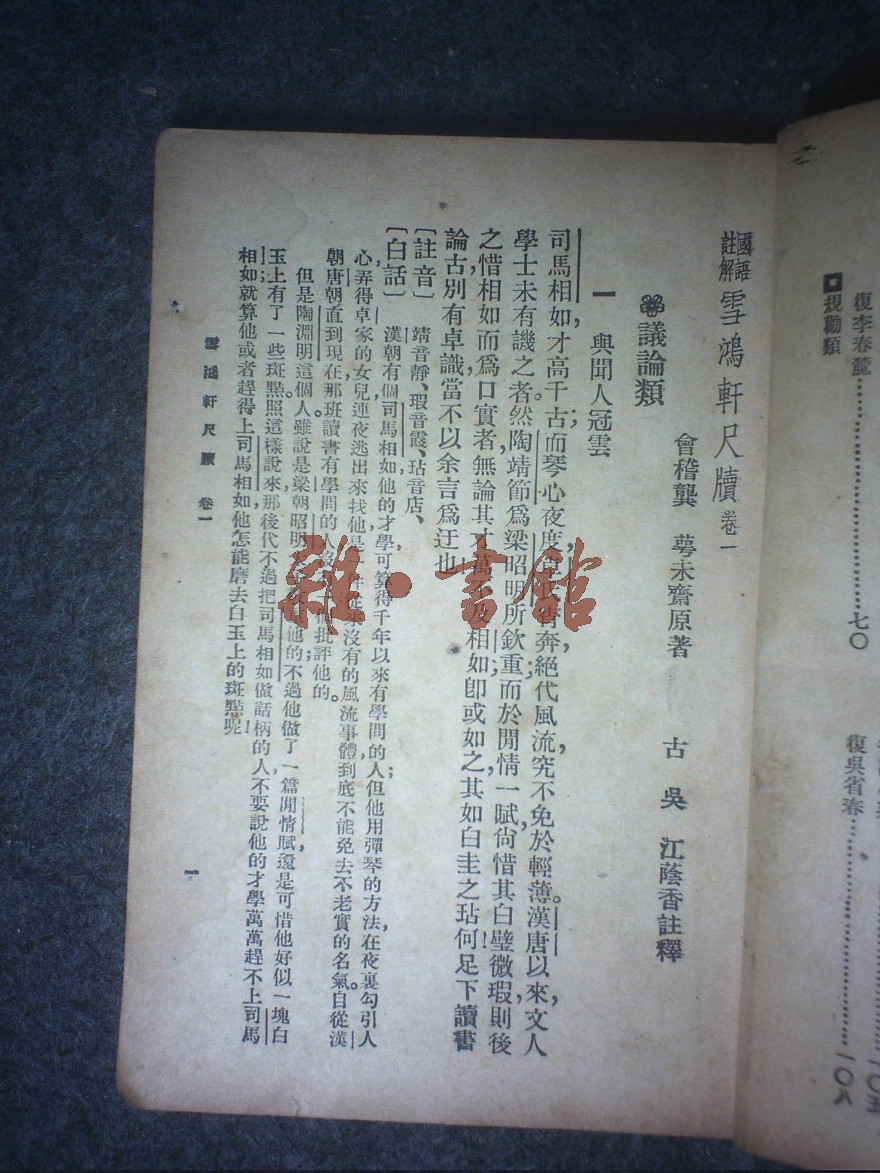 復李春麓……七〇
復吳省春……一〇八
■規勸類
國語註解 雪鴻軒尺牘 卷一
會稽龔 蕚未齋原著 古吳 江蔭香註釋
議論類
一 與聞人冠雲
司馬相如才高千古，而琴心夜度，奔，絕代風流，究不免於輕薄。漢唐以來，文人
學士未有譏之者；然陶靖節爲梁昭明所欽重，而於閒情一賦，尙惜其白璧微瑕，則後
之惜相如而爲口實者，無論其才萬不及相如；卽或如之，其如白圭之玷何！足下讀書
論古，別有卓識，當不以余言爲迂也
〔註音〕 靖音靜、瑕音霞、玷音店、
〔白話〕 漢朝有個司馬相如，他的才學，可算得千年以來有學問的人；但他用彈琴的方法，在夜裏勾引人
心，弄得卓家的女兒，連夜逃出來找他，是沒有的風流事體，到底不能免去不老實的名氣。自從漢
朝唐朝，直到現在，那班讀書有學問的人，沒批評他的。
但是陶淵明這個人，雖說是梁朝昭明他的，不過他做了一篇閒情賦，還是可惜他好似一塊白
玉上有了一些斑點；照這樣說來，那後代不過把司馬相如做話柄的人，不要說他的才學，萬萬趕不上司馬
相如；就算他或者趕得上司馬相如，他怎能磨去白玉上的斑點呢！
雪鴻軒尺牘 卷一
一
雜·書館